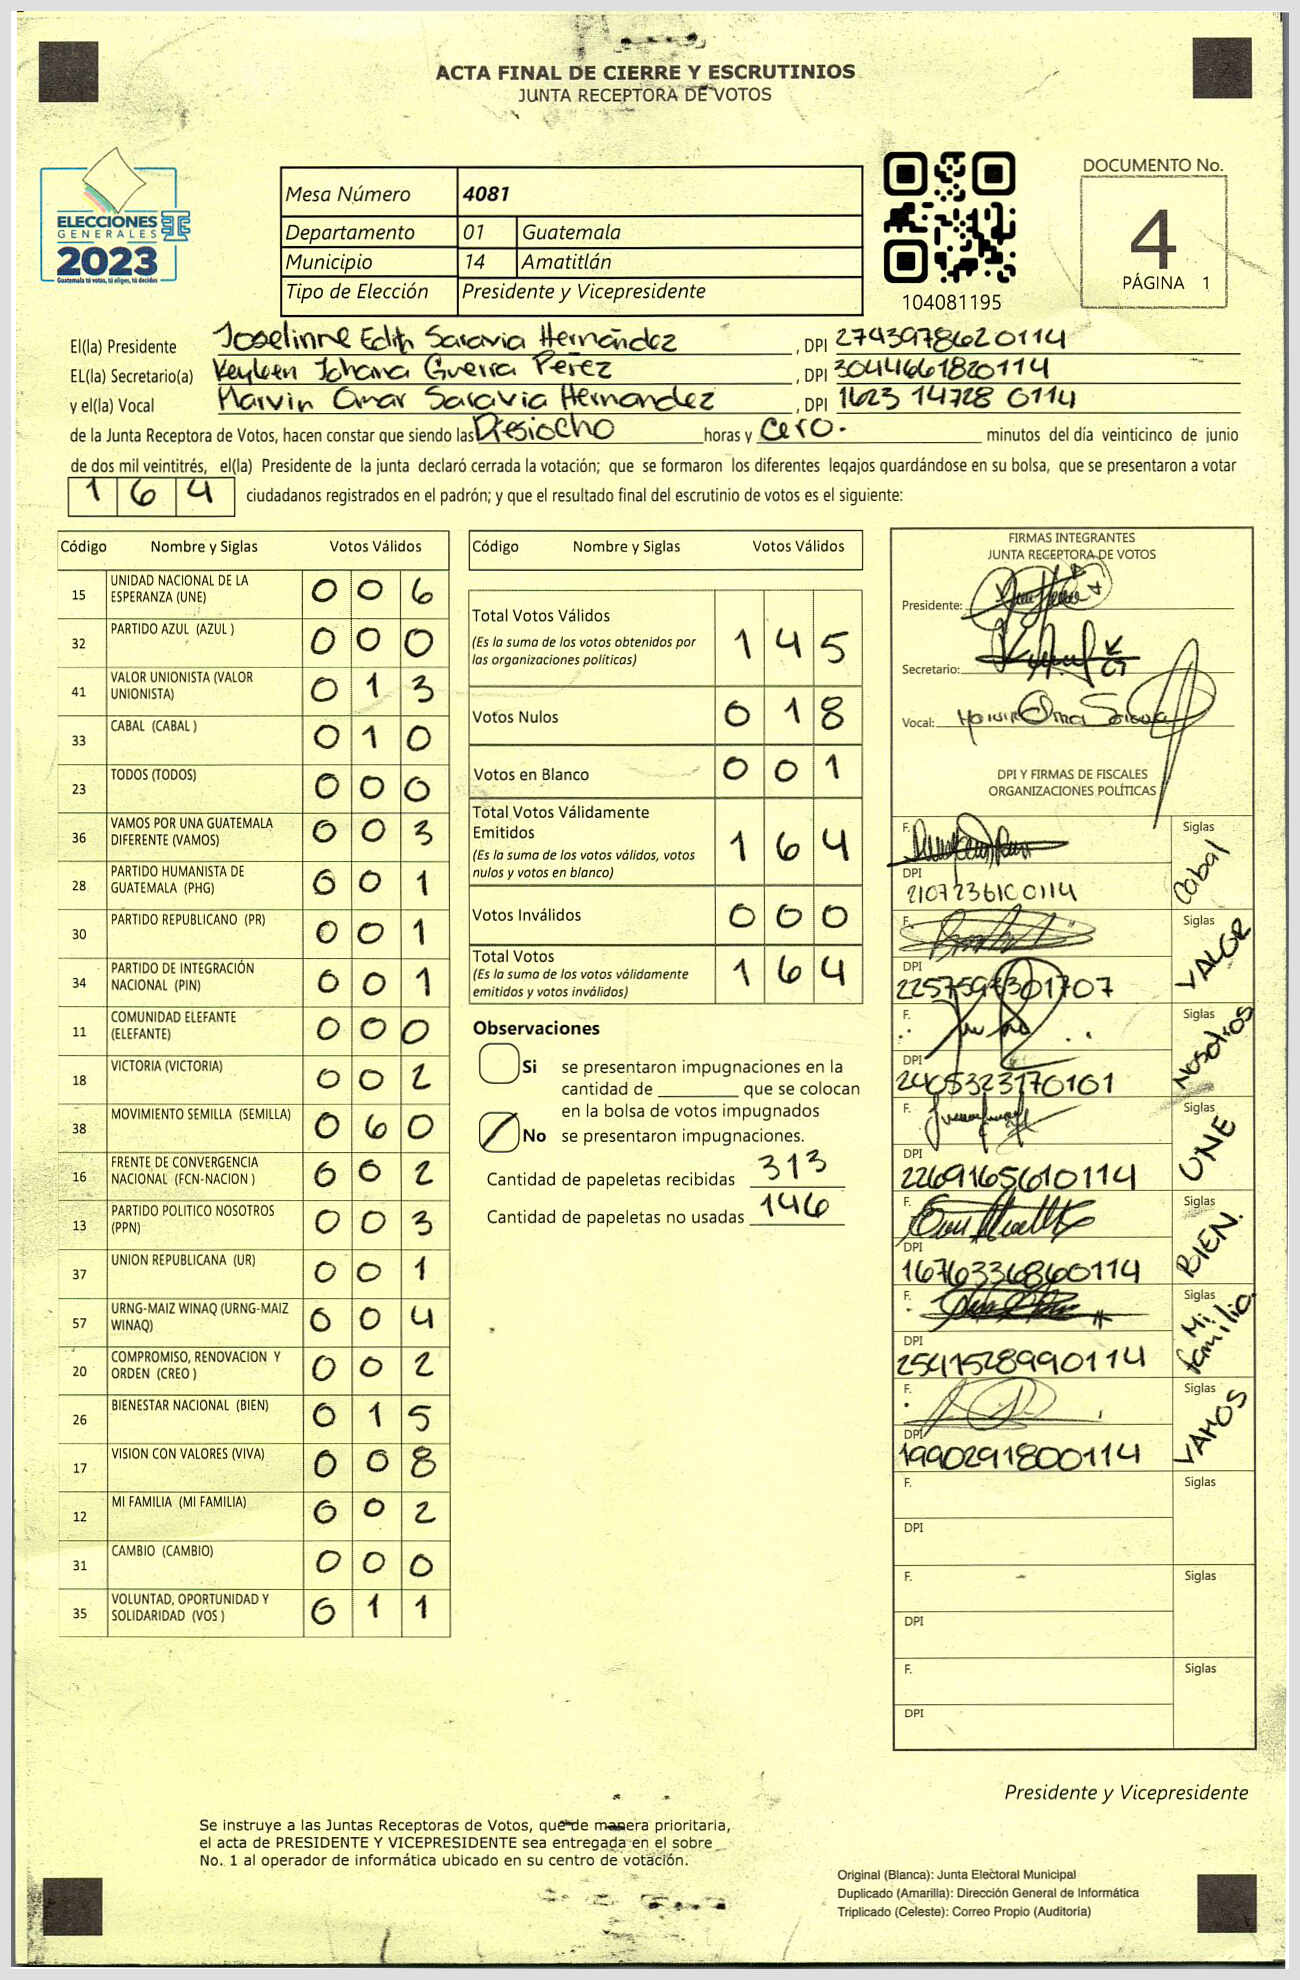 ACTA FINAL DE CIERRE Y ESCRUTINIOS
JUNTA RECEPTORA DE VOTOS
ELECCIONES
GENERALES
2023
Guatemala tú votas, tú eliges, tú decides
Mesa Número 4081
Departamento 01 Guatemala
Municipio 14 Amatitlán
Tipo de Elección Presidente y Vicepresidente
104081195
DOCUMENTO No.
4
PÁGINA 1
El(la) Presidente Joselinne Edith Saravia Hernández, DPI 2743978620114
EL(la) Secretario(a) Keyleen Johana Guerra Pérez, DPI 3044661820114
y el(la) Vocal Marvin Omar Saravia Hernandez, DPI 1623 14728 0114
de la Junta Receptora de Votos, hacen constar que siendo las Diesiocho horas y cero. minutos del día veinticinco de junio
de dos mil veintitrés, el(la) Presidente de la junta declaró cerrada la votación; que se formaron los diferentes legajos guardándose en su bolsa, que se presentaron a votar
1 6 4 ciudadanos registrados en el padrón; y que el resultado final del escrutinio de votos es el siguiente:
Código Nombre y Siglas Votos Válidos
15 UNIDAD NACIONAL DE LA ESPERANZA (UNE) 0 0 6
32 PARTIDO AZUL (AZUL ) 0 0 0
41 VALOR UNIONISTA (VALOR UNIONISTA) 0 1 3
33 CABAL (CABAL ) 0 1 0
23 TODOS (TODOS) 0 0 0
36 VAMOS POR UNA GUATEMALA DIFERENTE (VAMOS) 0 0 3
28 PARTIDO HUMANISTA DE GUATEMALA (PHG) 0 0 1
30 PARTIDO REPUBLICANO (PR) 0 0 1
34 PARTIDO DE INTEGRACIÓN NACIONAL (PIN) 0 0 1
11 COMUNIDAD ELEFANTE (ELEFANTE) 0 0 0
18 VICTORIA (VICTORIA) 0 0 2
38 MOVIMIENTO SEMILLA (SEMILLA) 0 6 0
16 FRENTE DE CONVERGENCIA NACIONAL (FCN-NACION ) 0 0 2
13 PARTIDO POLITICO NOSOTROS (PPN) 0 0 3
37 UNION REPUBLICANA (UR) 0 0 1
57 URNG-MAIZ WINAQ (URNG-MAIZ WINAQ) 0 0 4
20 COMPROMISO, RENOVACION Y ORDEN (CREO ) 0 0 2
26 BIENESTAR NACIONAL (BIEN) 0 1 5
17 VISION CON VALORES (VIVA) 0 0 8
12 MI FAMILIA (MI FAMILIA) 0 0 2
31 CAMBIO (CAMBIO) 0 0 0
35 VOLUNTAD, OPORTUNIDAD Y SOLIDARIDAD (VOS ) 0 1 1
Código Nombre y Siglas Votos Válidos
Total Votos Válidos 1 4 5
(Es la suma de los votos obtenidos por
las organizaciones políticas)
Votos Nulos 0 1 8
Votos en Blanco 0 0 1
Total Votos Válidamente
Emitidos 1 6 4
(Es la suma de los votos válidos, votos
nulos y votos en blanco)
Votos Inválidos 0 0 0
Total Votos 1 6 4
(Es la suma de los votos válidamente
emitidos y votos inválidos)
Observaciones
Si se presentaron impugnaciones en la
cantidad de ________ que se colocan
en la bolsa de votos impugnados
No se presentaron impugnaciones.
Cantidad de papeletas recibidas 313
Cantidad de papeletas no usadas 146
FIRMAS INTEGRANTES
JUNTA RECEPTORA DE VOTOS
Presidente:
Secretario:
Vocal:
DPI Y FIRMAS DE FISCALES
ORGANIZACIONES POLÍTICAS
F. Siglas Cabal
DPI 2107236100114
F. Siglas VALOR
DPI 2257597301707
F. Siglas Nosotros
DPI 2405323170101
F. Siglas UNE
DPI 2269165610114
F. Siglas BIEN.
DPI 1676336860114
F. Siglas Mi familia
DPI 2541528990114
F. Siglas VAMOS
DPI 1990291800114
F. Siglas
DPI
F. Siglas
DPI
F. Siglas
DPI
Presidente y Vicepresidente
Se instruye a las Juntas Receptoras de Votos, que de manera prioritaria,
el acta de PRESIDENTE Y VICEPRESIDENTE sea entregada en el sobre
No. 1 al operador de informática ubicado en su centro de votación.
Original (Blanca): Junta Electoral Municipal
Duplicado (Amarilla): Dirección General de Informática
Triplicado (Celeste): Correo Propio (Auditoria)